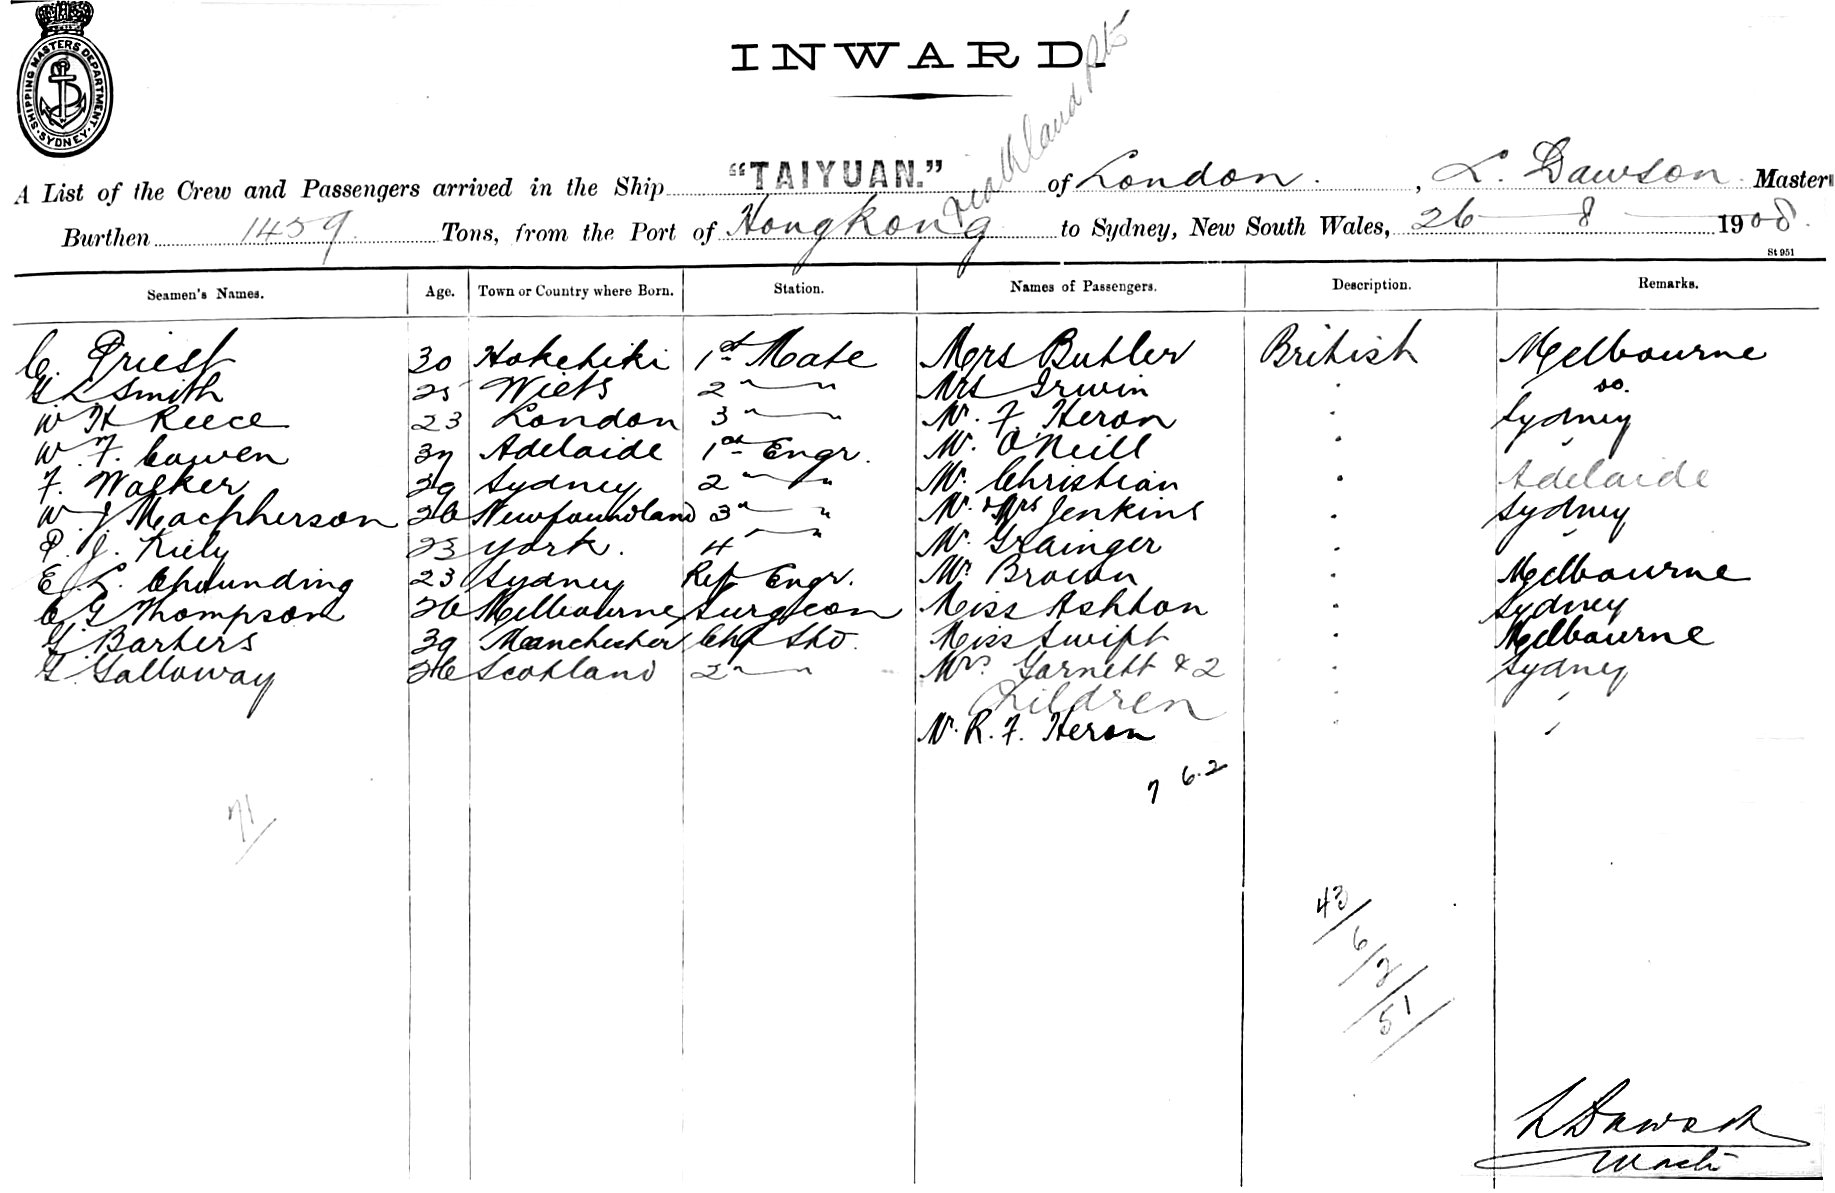 SHIPPING MASTERS DEPARTMENT
SYDNEY
INWARD.
A List of the Crew and Passengers arrived in the Ship "TAIYUAN." of London. , L. Dawson Master
Burthen 1459 Tons, from the Port of Hongkong to Sydney, New South Wales, 26 8 1908.
St 951
Seamen's Names. Age. Town or Country where Born. Station. Names of Passengers. Description. Remarks.
C. Priest 30 Hokehiki 1st Mate Mrs Butler British Melbourne
G L Smith 25 Wilts 2 " " Mrs Irwin do.
W H Reece 23 London 3 " " Mr. F. Heron Sydney
W. F. Cowen 37 Adelaide 1st Engr. Mr. O'Neill "
F. Walker 29 Sydney 2 " " Mr. Christian Adelaide
W. J Macpherson 26 Newfoundland 3 " " Mr. & Mrs Jenkins Sydney
P. J. Kiely 23 York. 4 " " Mr. Grainger "
E. L. 23 Sydney Ref Engr. Mr Brown Melbourne
C G Thompson 26 Melbourne Surgeon Miss Ashton Sydney
G Barbers 39 Manchester Chf Std. Miss Swift Melbourne
G. Galloway 26 Scotland 2 " " Mrs. Garnett & 2 Sydney
Children "
Mr. R. F. Heron "
7 6.2
71/
43/
6/
2/
51/
L Dawson
Master